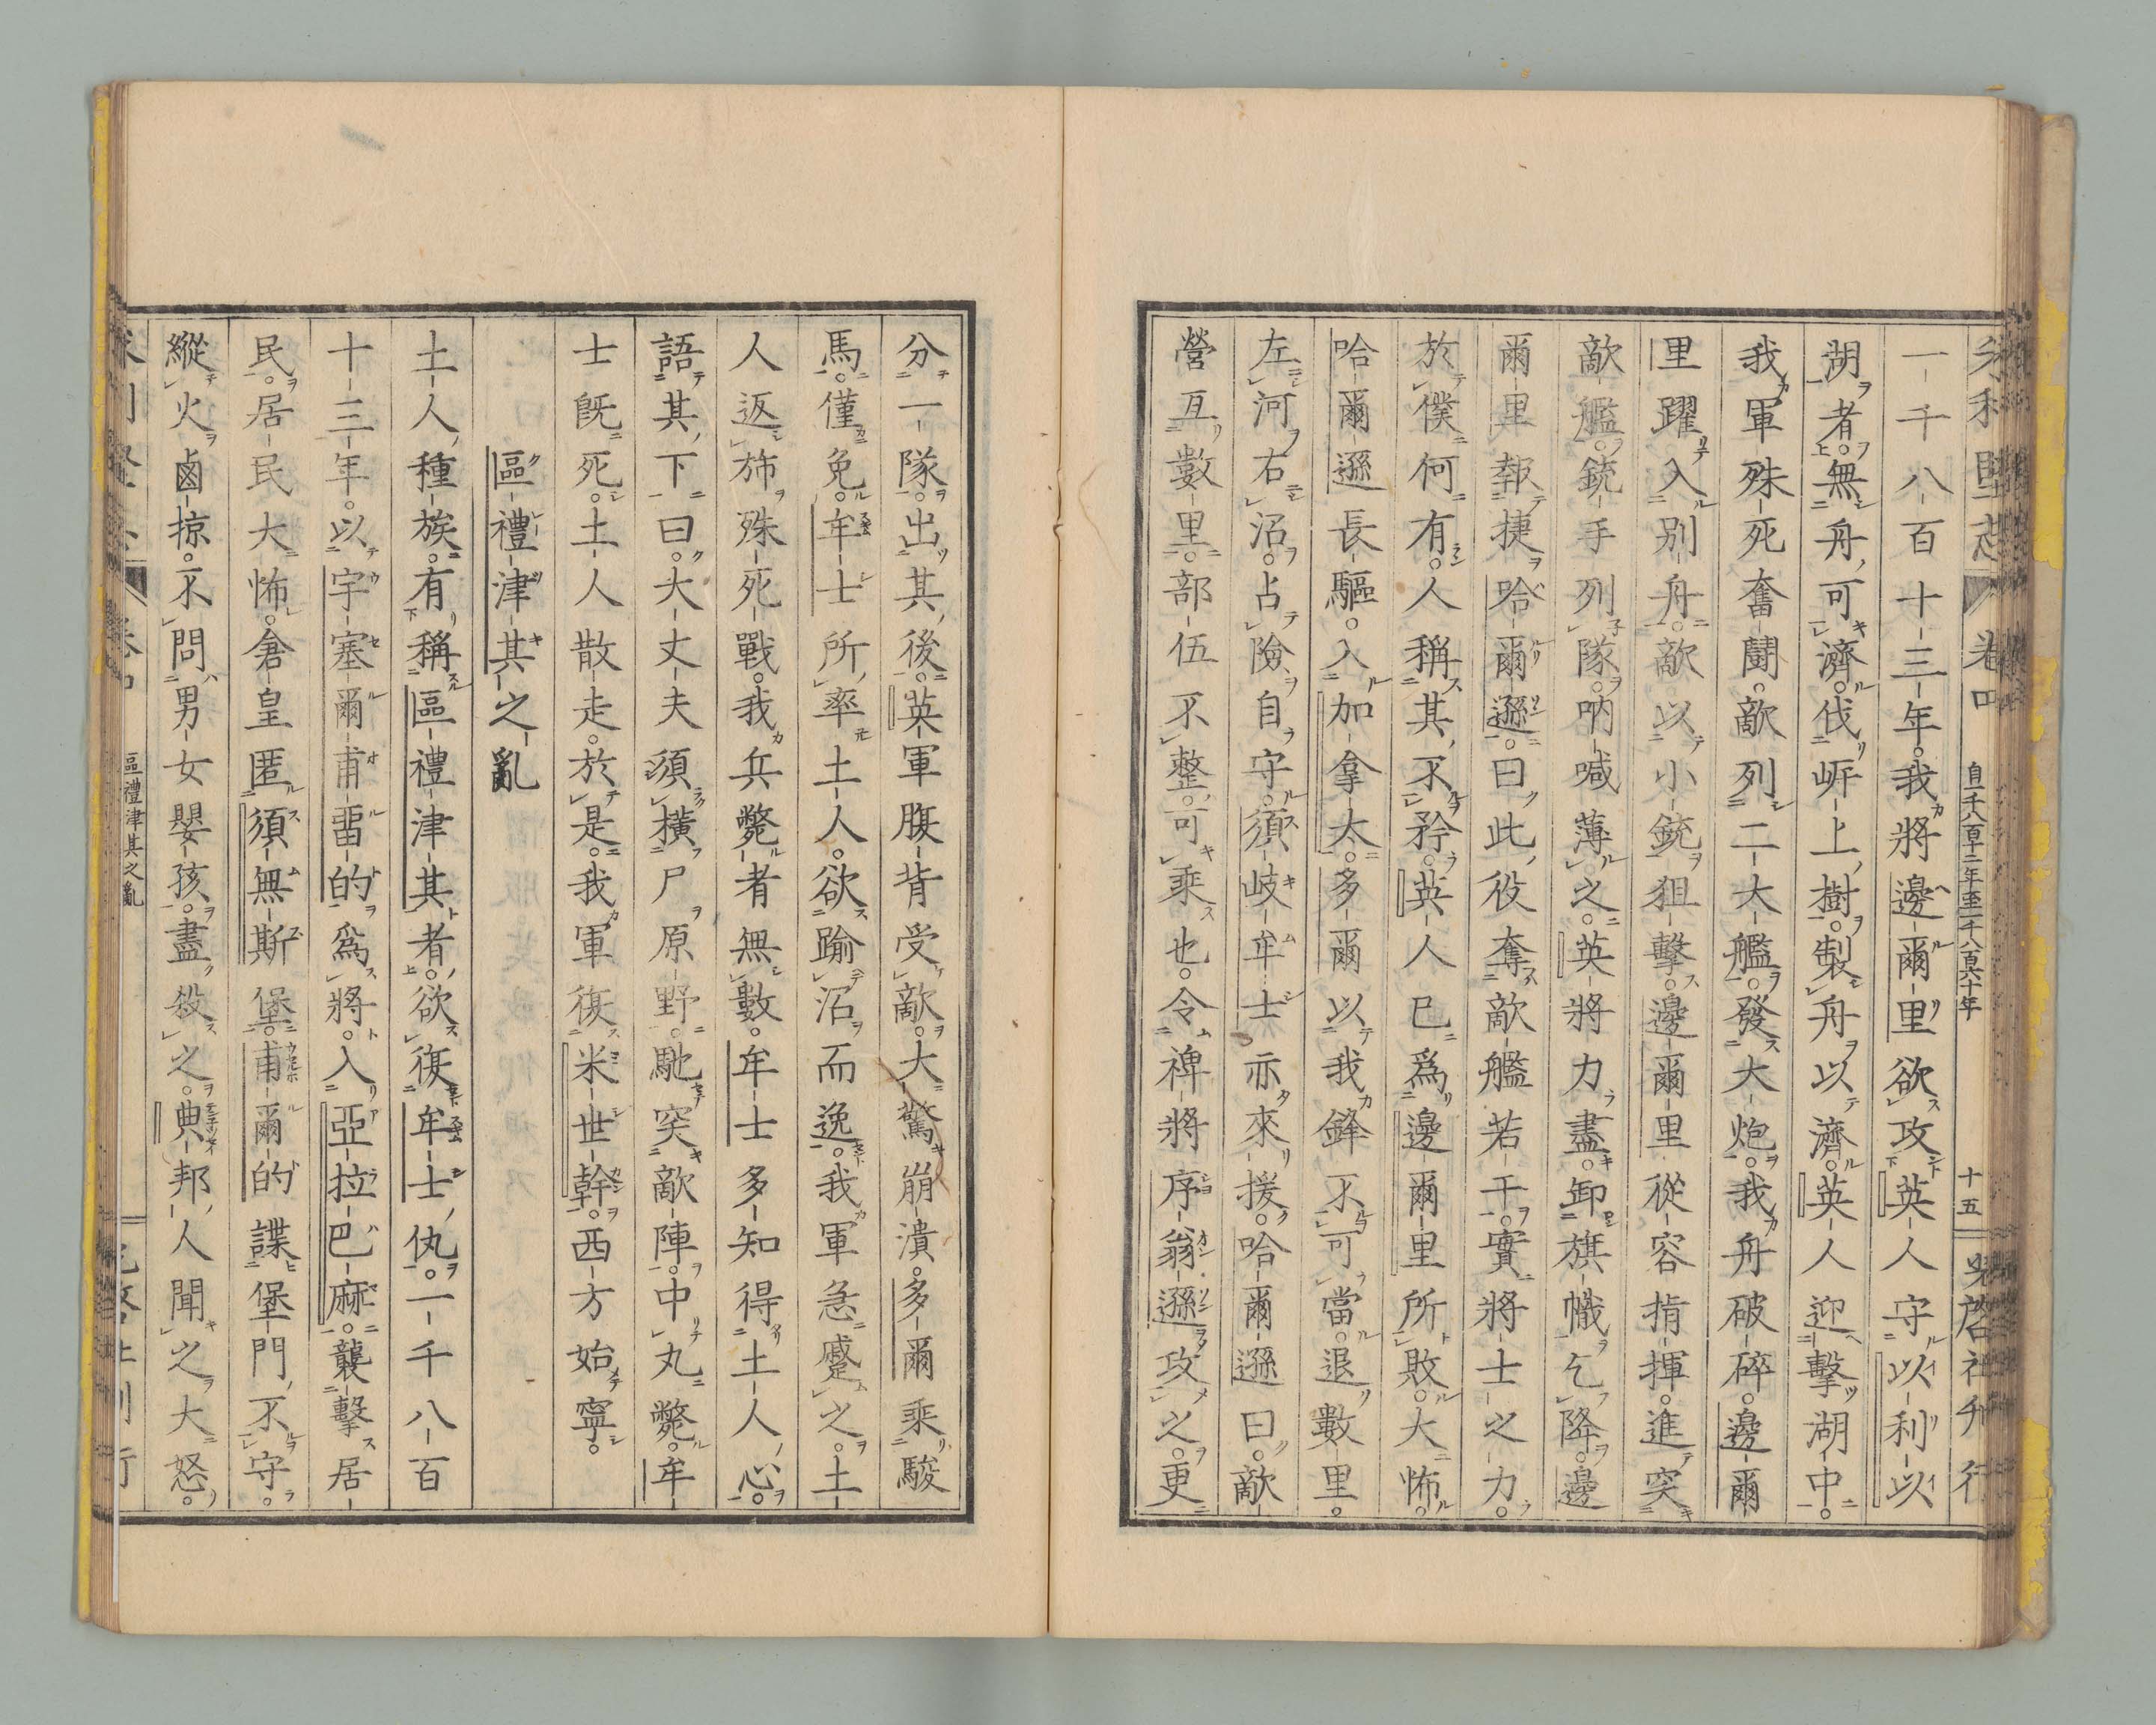 一千八百十三年。我將邊爾里欲攻英人守以利以
湖者。無舟可濟。伐岍上樹。製舟以濟。英人迎擊湖中。
我軍殊死奮鬪。敵列二大艦。發大炮。我舟破碎。邊爾
里躍入別舟。敵以小銃狙擊。邊爾里從容揹揮。進突
敵艦。銃手列隊。吶喊薄之。英將力盡。卸旗幟乞降。邊
爾里報捷哈爾遜。曰此役奪敵艦若干。實將士之力。
於僕何有。人稱其不矜。英人已爲邊爾里所敗。大怖。
哈爾遜長驅。入加拿太。多爾以我鋒不可當。退數里。
左河右沼。占險自守。須岐牟士亦來援。哈爾遜曰。敵
營亙數里。部伍不整。可乘也。令裨將序翁遜攻之。更
自千八百十二年至一千八百六十年
十五
分一隊。出其後。英軍腹背受敵。大驚崩潰。多爾乘駿
馬。僅免。牟士所率土人。欲踰沼而逸。我軍急蹙之。土
人返旆殊死戰。我兵斃者無數。牟士多知得土人心。
語其下曰。大丈夫須橫尸原野。馳突敵陣。中丸斃。牟
士既死。土人散走。於是。我軍復米世幹。西方始寧。
區禮津其之亂
土人種族。有稱區禮津其者。欲復牟士仇。一千八百
十三年。以宇塞爾甫畱的爲將。入亞拉巴麻。襲擊居
民。居民大怖。倉皇匿須無斯堡。甫爾的諜堡門不守。
縱火鹵掠。不問男女嬰孩。盡殺之。典邦人聞之大怒。
區禮津其之亂